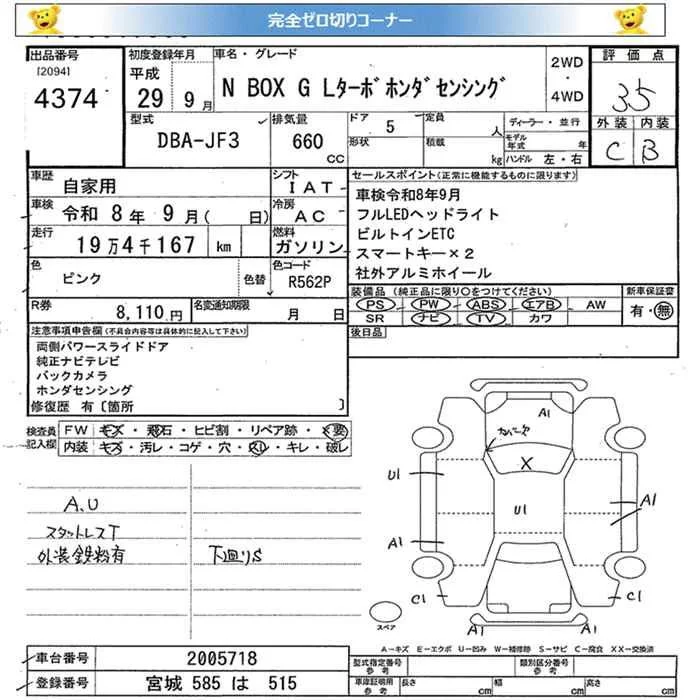 完全ゼロ切りコーナー
出品番号
[2094]
4374
初度登録年月
平成
29 9月
車名・グレード
N BOX G Lターボホンダセンシング
2WD
・
4WD
評価点
3.5
型式
DBA-JF3
排気量
660
CC
ドア 5
形状
定員 人
積載 kg
ディーラー・並行
モデル年式 年
ハンドル 左・右
外装 内装
C B
車歴
自家用
シフト
IAT
車検
令和 8年 9月( 日)
冷房
AC
走行
19万4千167 km
燃料
ガソリン
色
ピンク
色替
色コード
R562P
R券
8,110円
名変通知期限
月 日
セールスポイント(正常に機能するものに限ります)
車検令和8年9月
フルLEDヘッドライト
ビルトインETC
スマートキー×2
社外アルミホイール
装備品(純正品に限り○をつけてください)
新車保証書
PS PW ABS エアB AW
SR ナビ TV カワ
有・無
後日品
注意事項申告欄(不具合内容等は具体的に記入して下さい)
両側パワースライドドア
純正ナビテレビ
バックカメラ
ホンダセンシング
修復歴 有〔箇所 〕
検査員記入欄
FW キズ・飛石・ヒビ割・リペア跡・×要
内装 キズ・汚レ・コゲ・穴・スレ・キレ・破レ
A.U
スタットレスT
外装鉄粉有
下廻りS
A1
カバーズ
X
U1
U1
A1
A1
C1
C1
スペア
A-キズ E-エクボ U-凹み W-補修跡 S-サビ C-腐食 XX-交換済
車台番号
2005718
登録番号
宮城 585 は 515
型式指定番号
参考
類別区分番号
参考
車庫証明用
参考
長さ cm
幅 cm
高さ cm